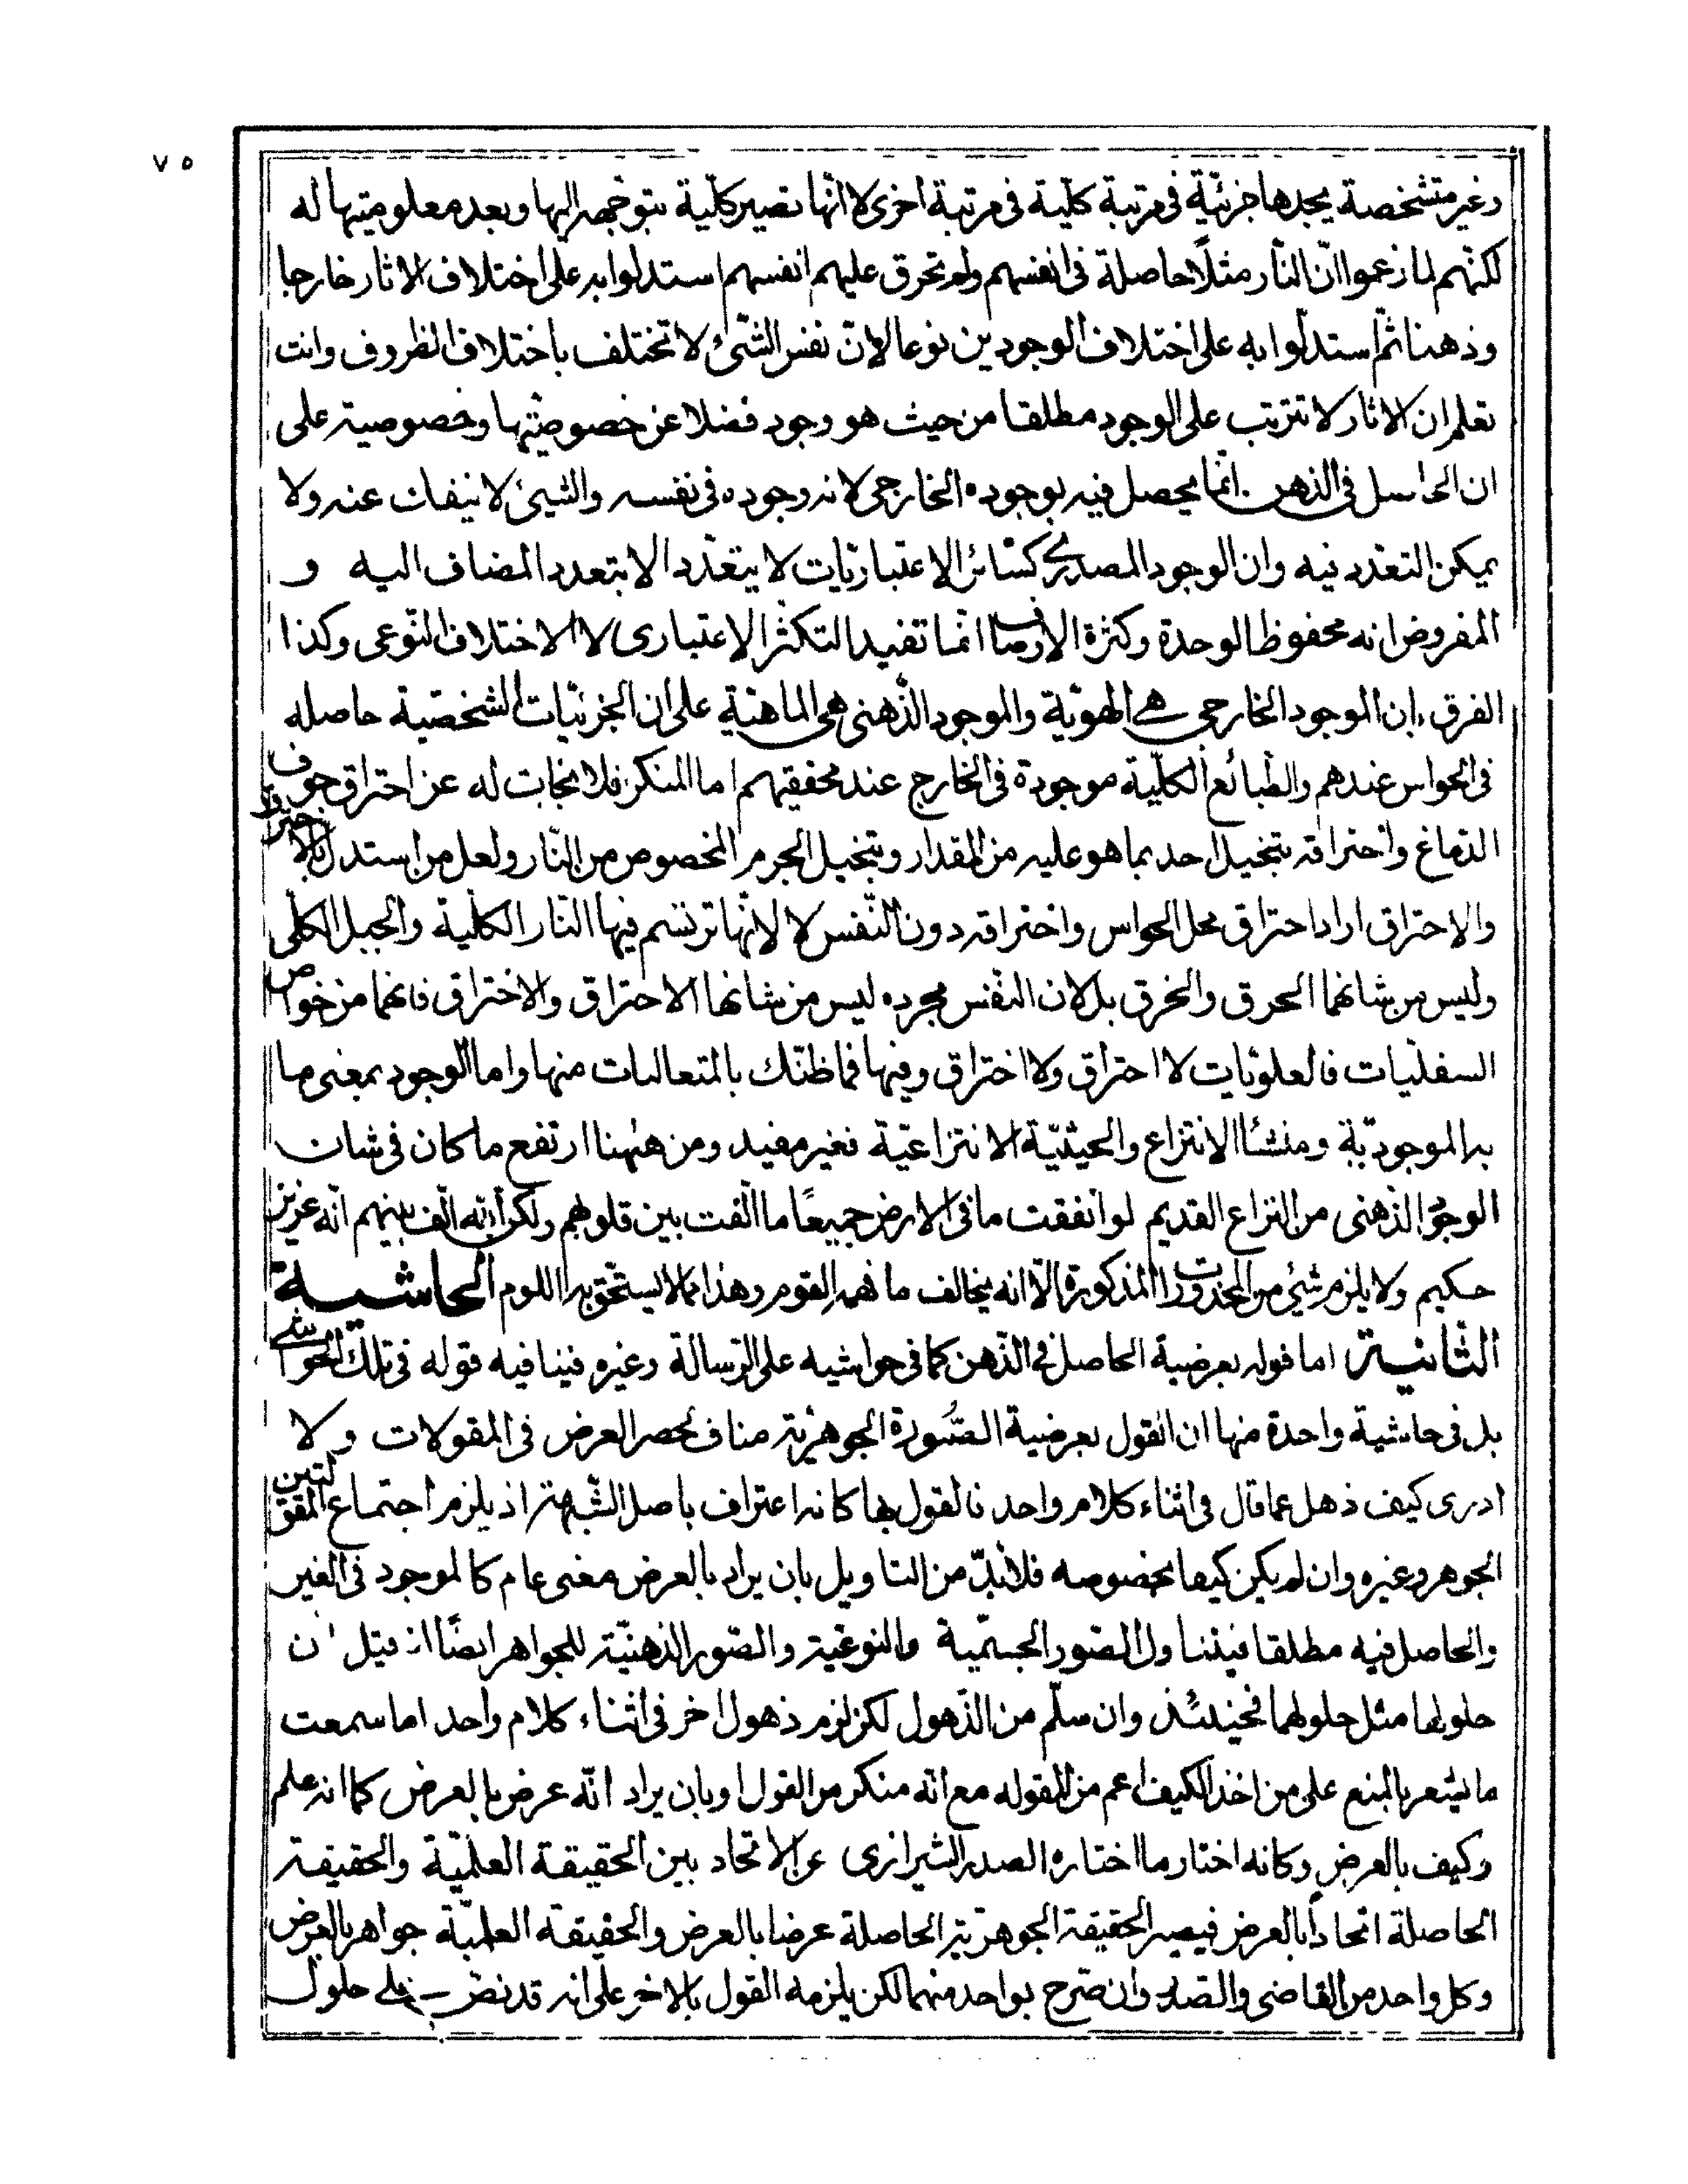 ٧٥
وغير متشخصة يجدها جزئيّة فى مرتبة كلّية فى مرتبة اخرى لا انّها تصير كلّية بتوجّهه اليها وبعد معلوميتها له
لكنّهم لما زعموا انّ النّار مثلًا حاصلة فى انفسهم ولم تحرق عليهم انفسهم استدلوا به على اختلاف الاثار خارجا
وذهنا ثمّ استدلّوا به على اختلاف الوجودين نوعا لانّ نفس الشّئ لا تختلف باختلاف الظروف وانت
تعلم ان الاثار لا تترتب على الوجود مطلقا من حيث هو وجود فضلا عن خصوصيتها وخصوصيته على
ان الحاصل فى الذهن انّما يحصل فيه بوجوده الخارجى لانه وجوده فى نفسه والشيئ لا ينفك عنه ولا
يمكن التعّدد فيه وان الوجود المصدرى كسائر الاعتباريّات لا يتعّدد الا بتعدد المضاف اليه و
المفروض انه محفوظ الوحدة وكثرة الاوصاف انّما تفيد التكثّر الاعتبارى لا الاختلاف النّوعى وكذا
الفرق بان الموجود الخارجى هى الهويّة والموجود الذّهنى هى الماهيّة على ان الجزئيّات الشخصية حاصله
فى الحواس عندهم والطّبائع الكلّية موجودة فى الخارج عند محققيهم اما المنكر فلا نجات له عن احتراق جوف
الدّماغ واختراقه بتخيل احد بما هو عليه من المقدار وبتخيل الجرم المخصوص من النّار ولعل من استدل بالاختراق
والاحتراق اراد احتراق محل الحواس واختراقه دون النّفس لا لانّها ترتسم فيها النّار الكلّية والجبل الكلّى
وليس من شانهما الحرق والخرق بل لان النّفس مجرده ليس من شانها الاحتراق والاختراق فانهما من خواص
السفليّات فالعلويّات لا احتراق ولا اختراق وفيها فما ظنّك بالمتعاليات منها واما الوجود بمعنى ما
به الموجوديّة ومنشأ الانتزاع والحيثيّة الانتزاعيّة فغير مفيد ومن ههنا ارتفع ما كان فى شان
الوجود الذّهنى من النزاع القديم لو انفقت ما فى الارض جميعًا ما الّفت بين قلوبهم ولكن الله الّف بينهم انّه عزيز
حكيم ولا يلزم شيئ من المحذورات المذكورة الّا انه يخالف ما فهمه القوم وهذا مما لا يستحّق به اللوم الحاشية
الثّانية اما قوله بعرضية الحاصل فى الذّهن كما فى حواشيه على الرّسالة وغيره فينافيه قوله فى تلك الحواشى
بل فى حاشية واحدة منها ان القول بعرضية الصّورة الجوهريّة مناف لحصر العرض فى المقولات ولا
ادرى كيف ذهل عما قال فى اثناء كلام واحد فالقول بها كانه اعتراف باصل الشّبهة اذ يلزم اجتماع المقولتين
الجوهر وغيره وان لم يكن كيفا بخصوصه فلا بدّ من التاويل بان يراد بالعرض معنى عام كالموجود فى الغير
والحاصل فيه مطلقا فيتناول الصّور الجسميّة والنوعيّة والصّور الذهنيّة للجواهر ايضًا اذ قيل ان
حلولها مثل حلولهما فحينئذ وان سلّم من الذّهول لكن لزم ذهول اخر فى اثناء كلام واحد اما سمعت
ما يشعر بالمنع على من اخذ الكيف اعم من المقوله مع انّه منكر من القول او بان يراد انّه عرض بالعرض كما انه علم
وكيف بالعرض وكانه اختار ما اختاره الصدر الشيرازى عن الاتحاد بين الحقيقة العلميّة والحقيقة
الحاصلة اتحادًا بالعرض فيصير الحقيقة الجوهريّة الحاصلة عرضا بالعرض والحقيقة العلميّة جواهر بالعرض
وكل واحد من القاضى والصدر وان صّرح بواحد منهما لكن يلزمه القول بالاخر على انه قد نصّ على حلول